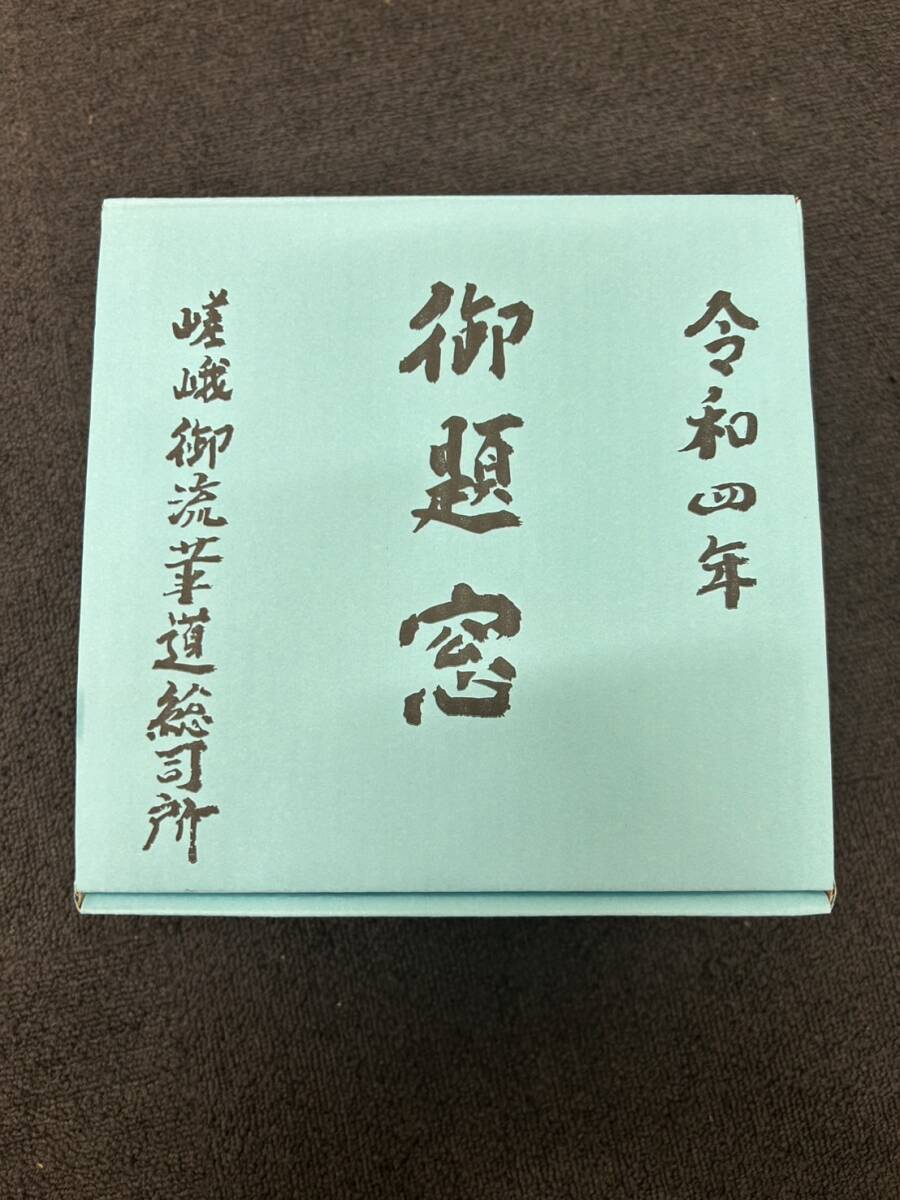 令和四年
御題窓
嵯峨御流華道総司所